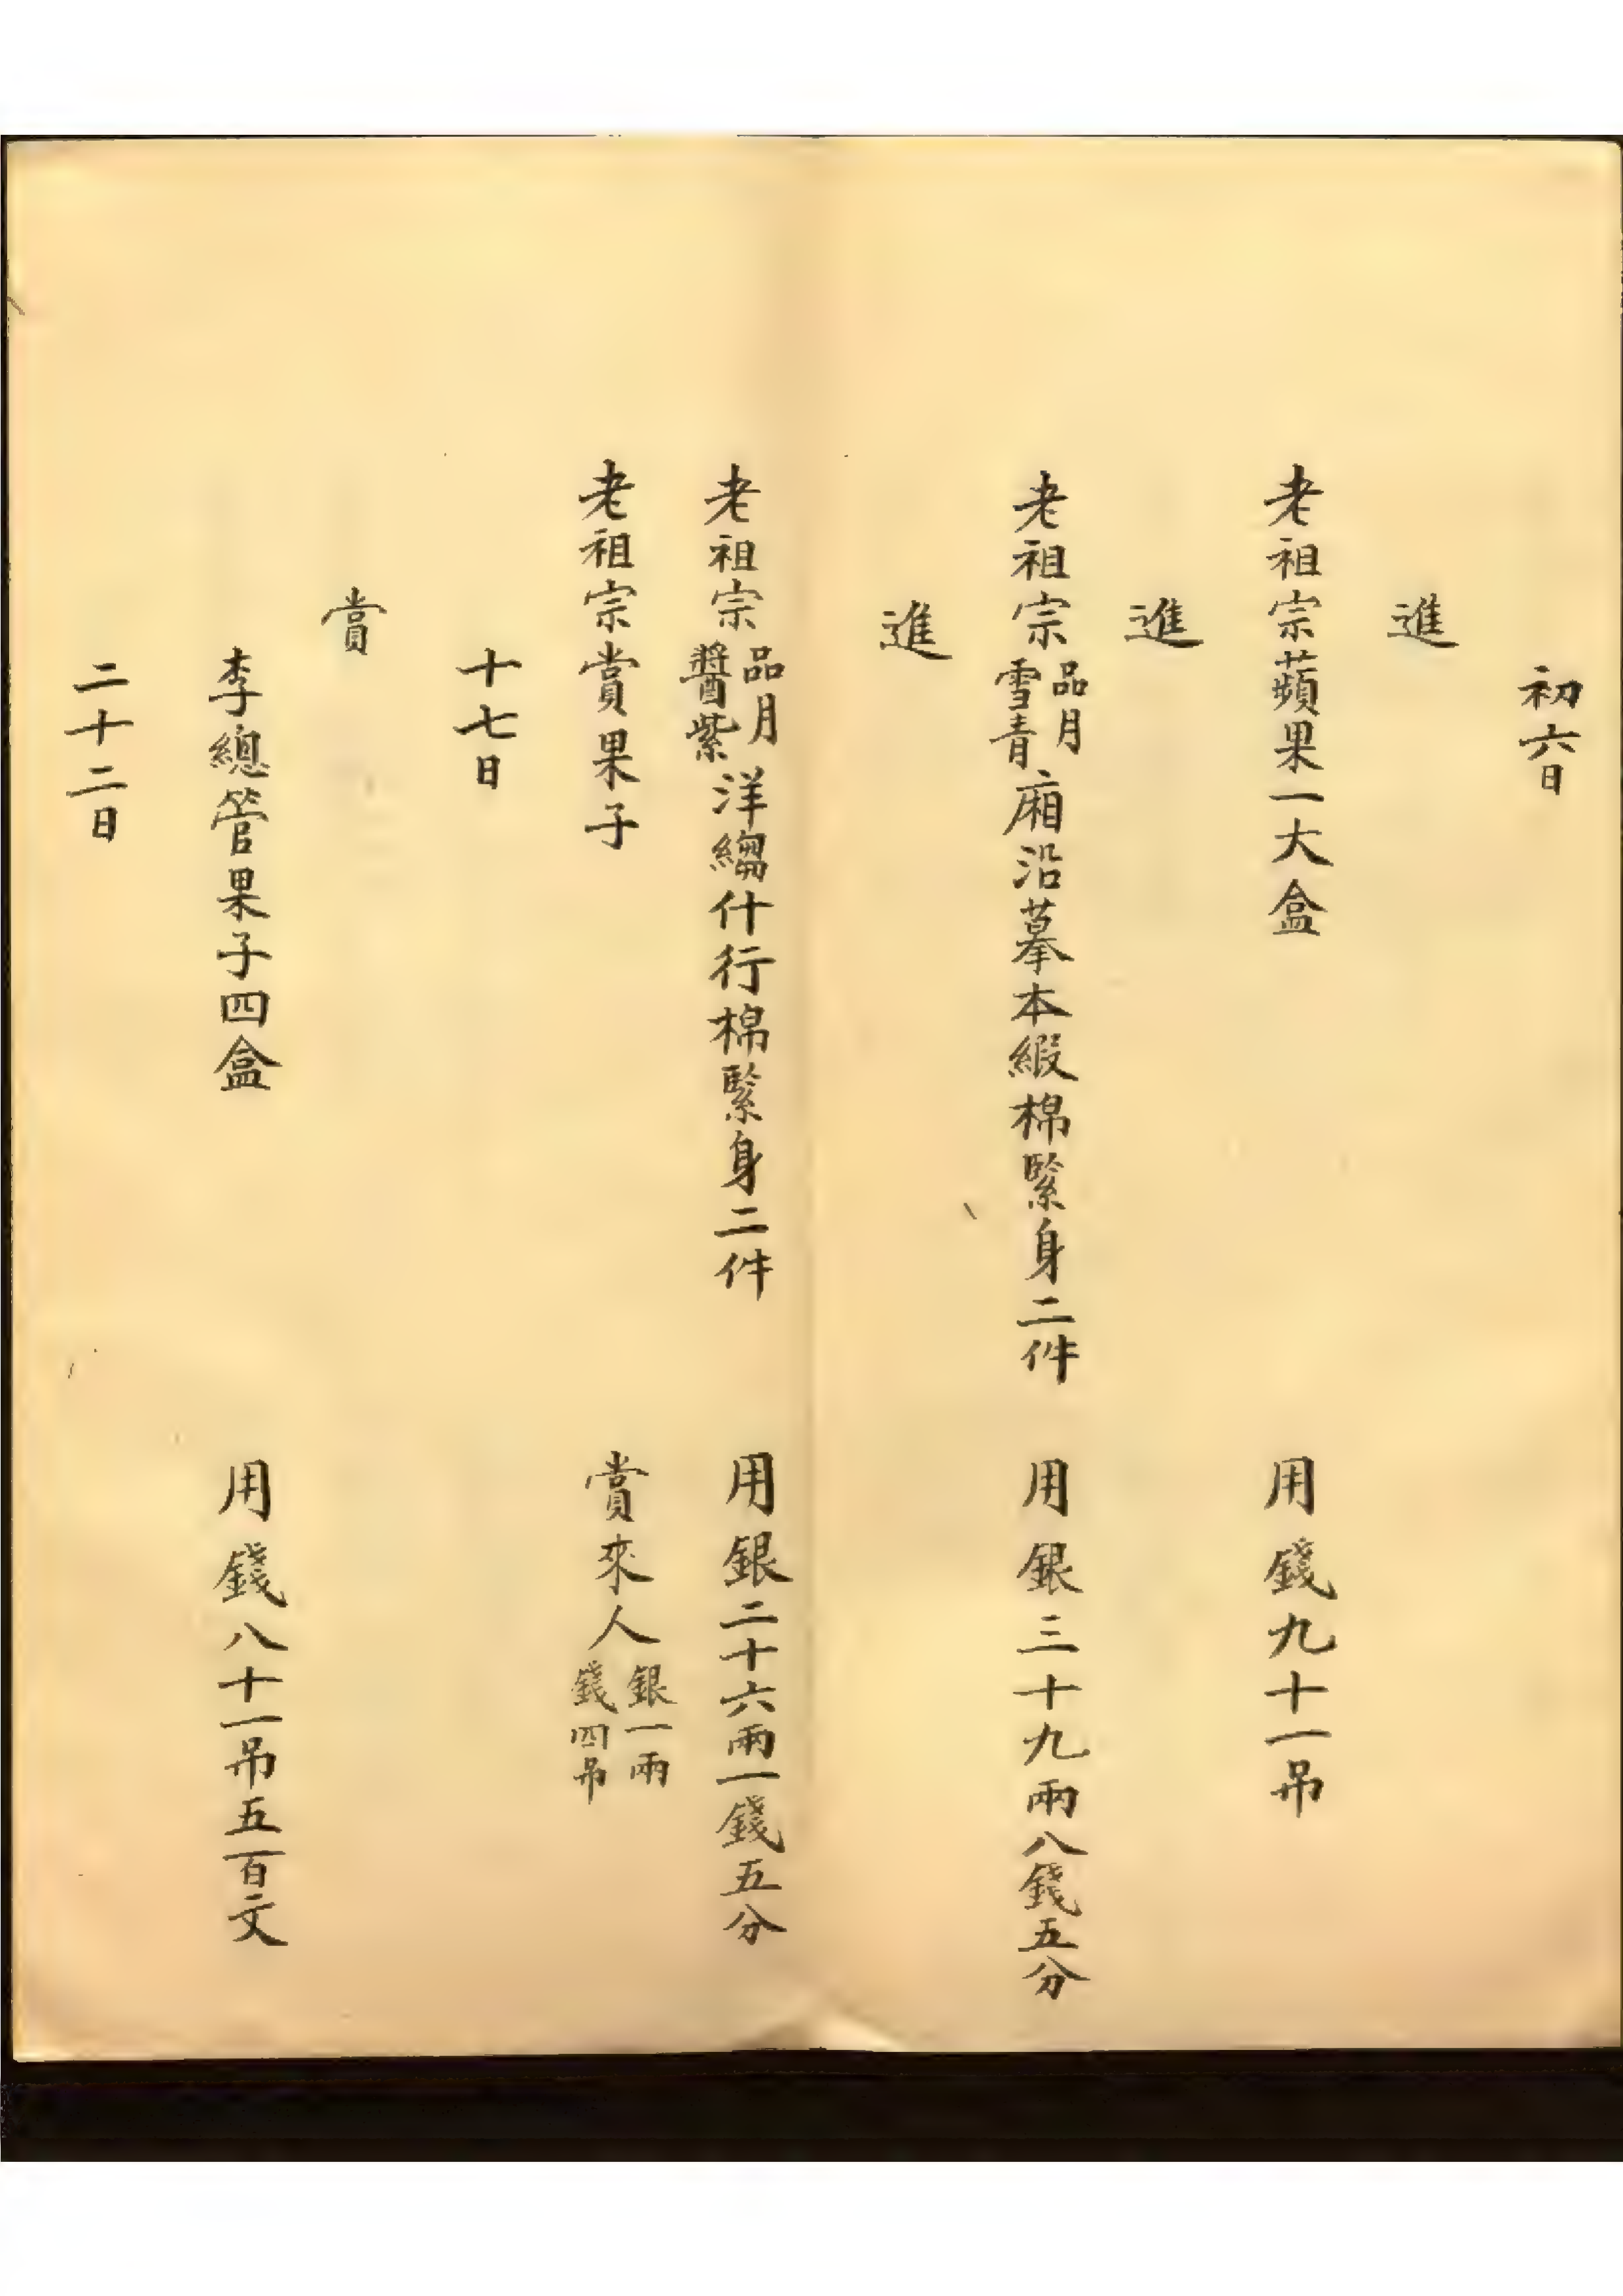 初六日
進
老祖宗蘋果一大盒 用錢九十一吊
進
老祖宗品月雪青廂沿摹本緞棉緊身二件 用銀三十九兩八錢五分
進
老祖宗品月醬紫洋縐什行棉緊身二件 用銀二十六兩一錢五分
老祖宗賞果子 賞來人銀一兩錢四吊
十七日
賞
李總管果子四盒 用錢八十一吊五百文
二十二日